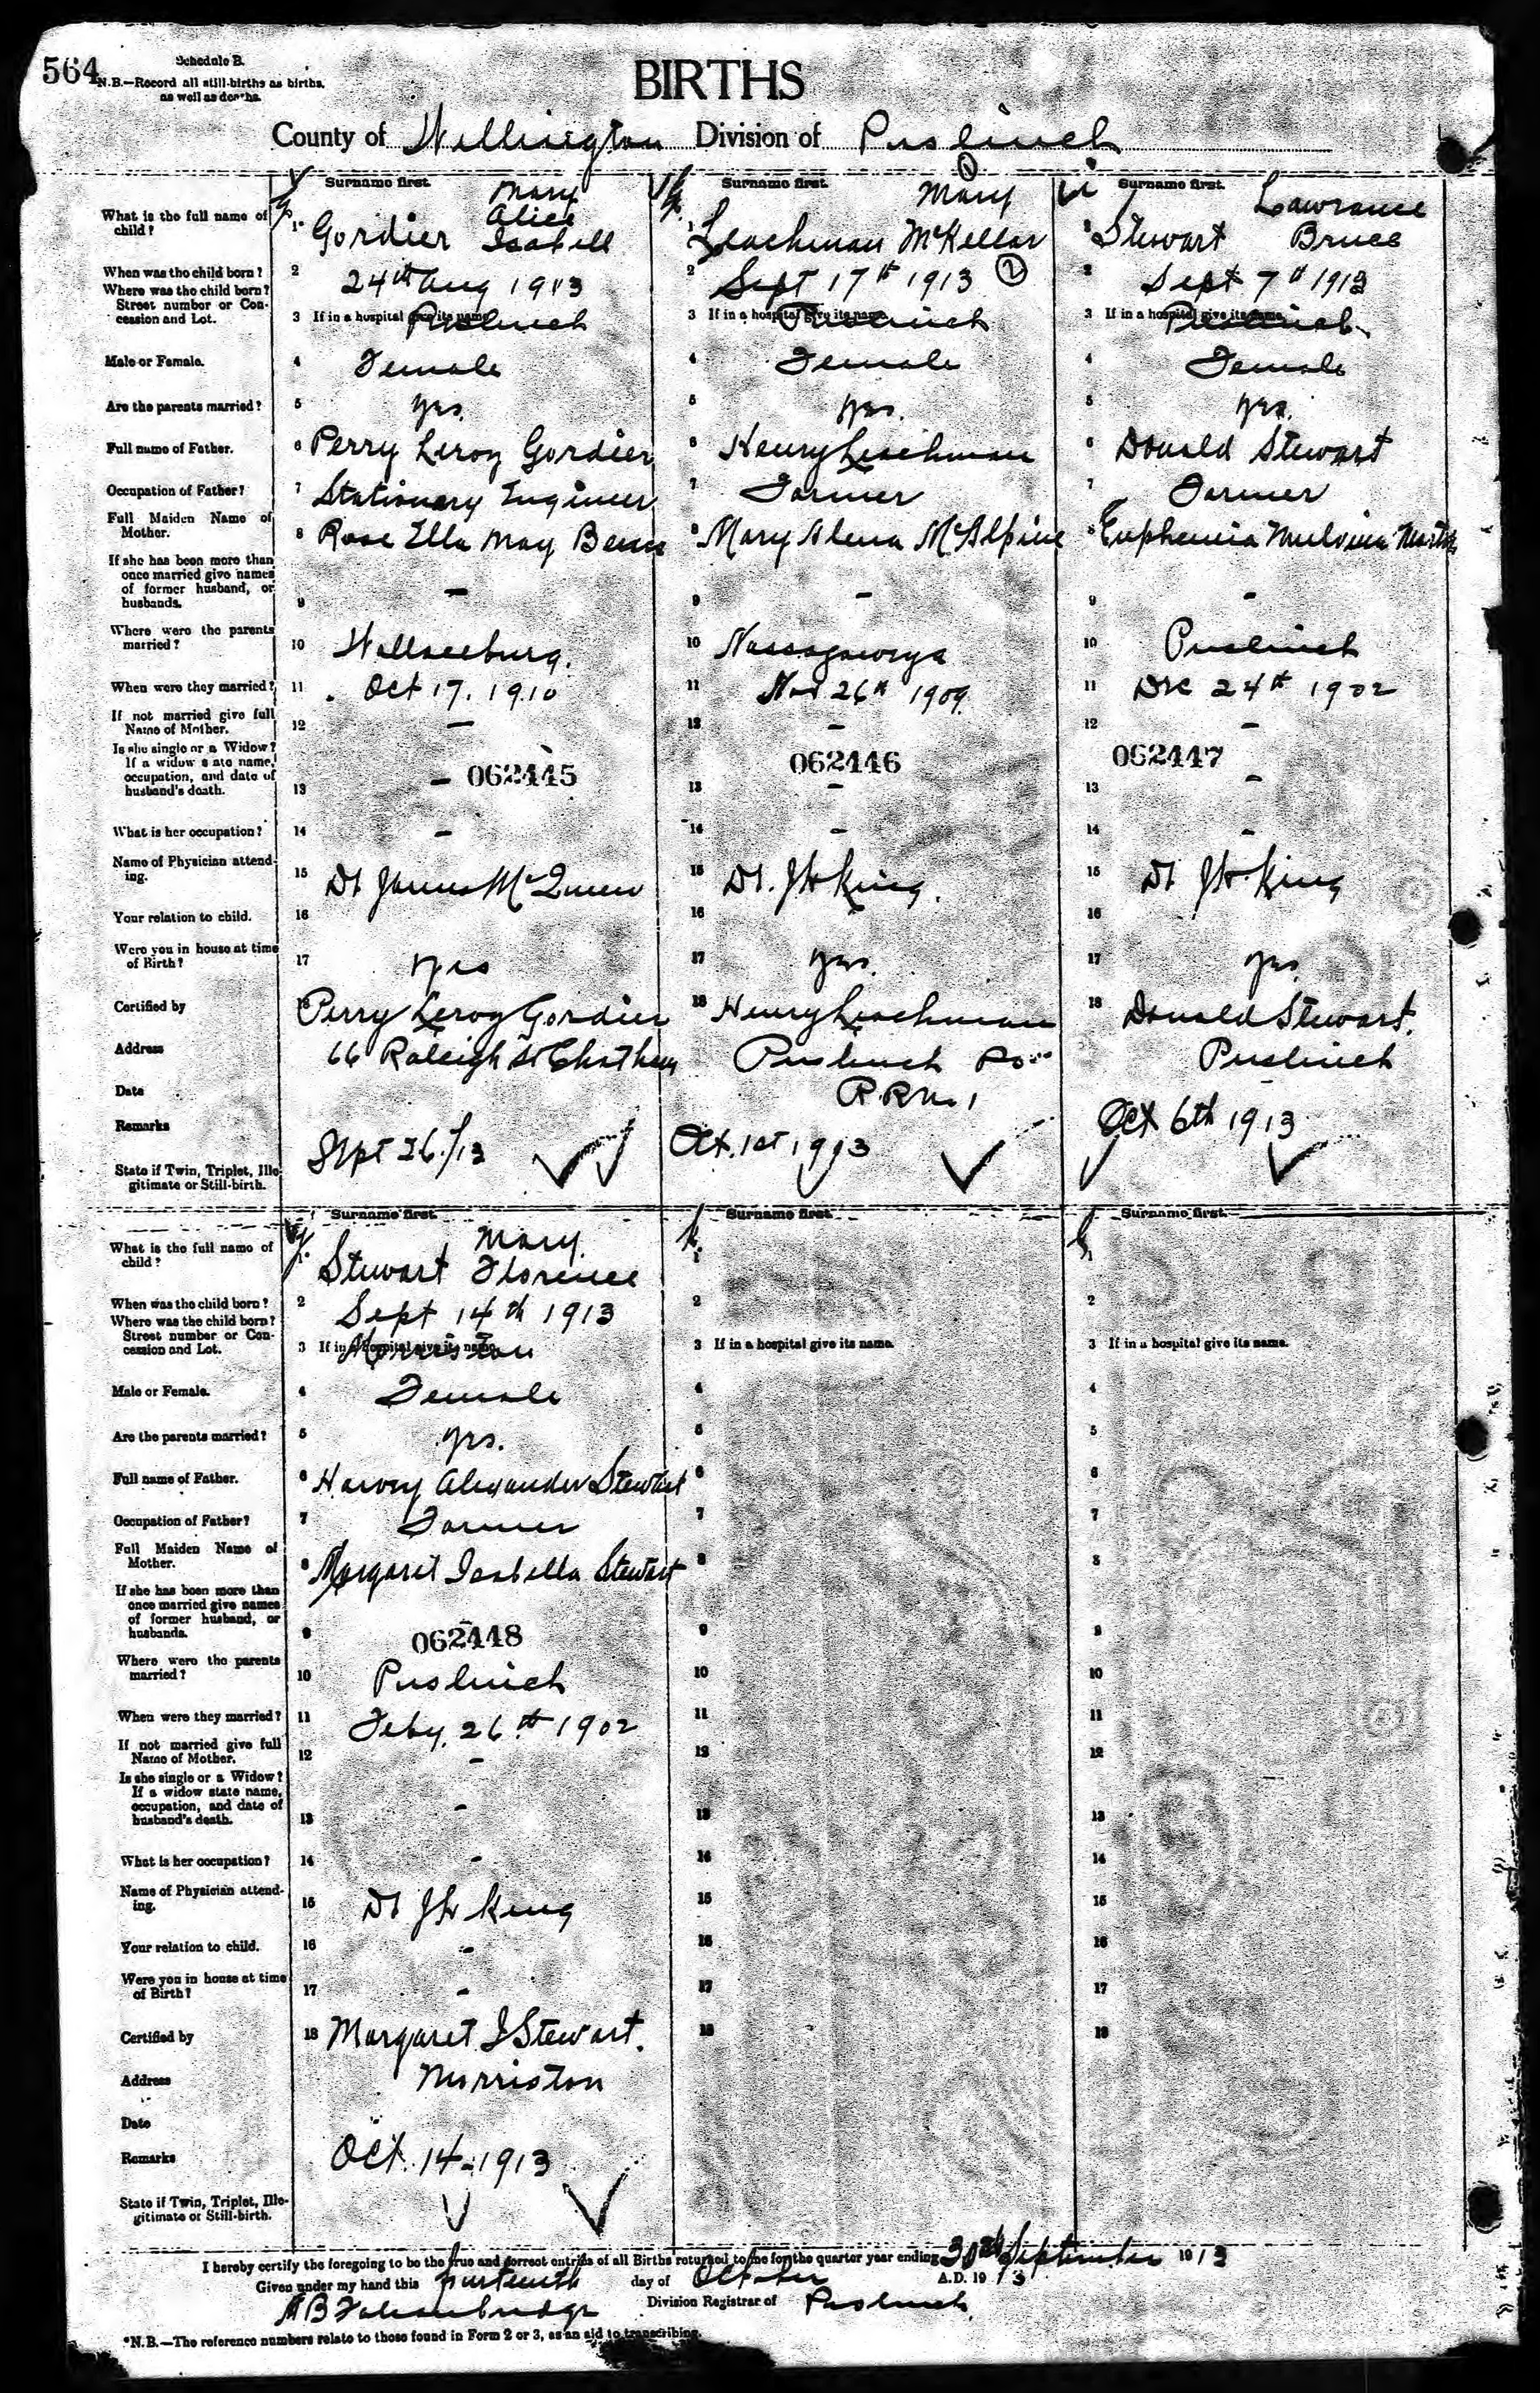 564
Schedule B.
N.B.—Record all still-births as births,
as well as deaths.
BIRTHS
County of Wellington Division of Puslinch
Surname first.
What is the full name of child?
1 Gordier Mary Alice Isabell
When was the child born?
2 24th Aug 1913
Where was the child born? Street number or Concession and Lot.
3 If in a hospital give its name
Puslinch
Male or Female.
4 Female
Are the parents married?
5 yes.
Full name of Father.
6 Perry Leroy Gordier
Occupation of Father?
7 Stationary Engineer
Full Maiden Name of Mother.
8 Rose Ella May
If she has been more than once married give names of former husband, or husbands.
9 -
Where were the parents married?
10 Wallaceburg.
When were they married?
11 Oct 17. 1910
If not married give full Name of Mother.
12 -
Is she single or a Widow? If a widow state name, occupation, and date of husband's death.
13 - 062445
What is her occupation?
14 -
Name of Physician attending.
15 Dr James McQueen
Your relation to child.
16
Were you in house at time of Birth?
17 yes
Certified by
18 Perry Leroy Gordier
Address
66 Raleigh St Chatham
Date
Remarks
Sept 26/13
State if Twin, Triplet, Illegitimate or Still-birth.
Surname first.
1 Leachman Mary McKellar
2 Sept 17th 1913 2
3 If in a hospital give its name
Puslinch
4 Female
5 yes.
6 Henry Leachman
7 Farmer
8 Mary Alena McAlpine
9 -
10 Nassagaweya
11 Nov 26th 1909
12 -
062446
13 -
14 -
15 Dr. J H King.
16
17 yes.
18 Henry Leachman
Puslinch Po
R R No 1
Oct. 1st 1913
Surname first.
1 Stewart Lawrance Bruce
2 Sept 7th 1913
3 If in a hospital give its name
Puslinch
4 Female
5 yes.
6 Donald Stewart
7 Farmer
8 Euphemia Malvina
9 -
10 Puslinch
11 Dec 24th 1902
12 -
062447
13 -
14 -
15 Dr J H King
16
17 yes
18 Donald Stewart.
Puslinch
Oct 6th 1913
Surname first.
What is the full name of child?
1 Stewart Mary Florence
When was the child born?
2 Sept 14th 1913
Where was the child born? Street number or Concession and Lot.
3 If in a hospital give its name
Morriston
Male or Female.
4 Female
Are the parents married?
5 yes.
Full name of Father.
6 Harvey Alexander Stewart
Occupation of Father?
7 Farmer
Full Maiden Name of Mother.
8 Margaret Isabella Stewart
If she has been more than once married give names of former husband, or husbands.
9 -
062448
Where were the parents married?
10 Puslinch
When were they married?
11 Feby. 26th 1902
If not married give full Name of Mother.
12 -
Is she single or a Widow? If a widow state name, occupation, and date of husband's death.
13 -
What is her occupation?
14 -
Name of Physician attending.
15 Dr J H King
Your relation to child.
16 -
Were you in house at time of Birth?
17 -
Certified by
18 Margaret I Stewart.
Address
Morriston
Date
Remarks
Oct. 14-1913
State if Twin, Triplet, Illegitimate or Still-birth.
Surname first.
1
2
3 If in a hospital give its name.
4
5
6
7
8
9
10
11
12
13
14
15
16
17
18
Surname first.
1
2
3 If in a hospital give its name.
4
5
6
7
8
9
10
11
12
13
14
15
16
17
18
I hereby certify the foregoing to be the true and correct entries of all Births returned to me for the quarter year ending 30th September 1913
Given under my hand this fourteenth day of October A.D. 1913
Division Registrar of Puslinch
*N.B.—The reference numbers relate to those found in Form 2 or 3, as an aid to transcribing.